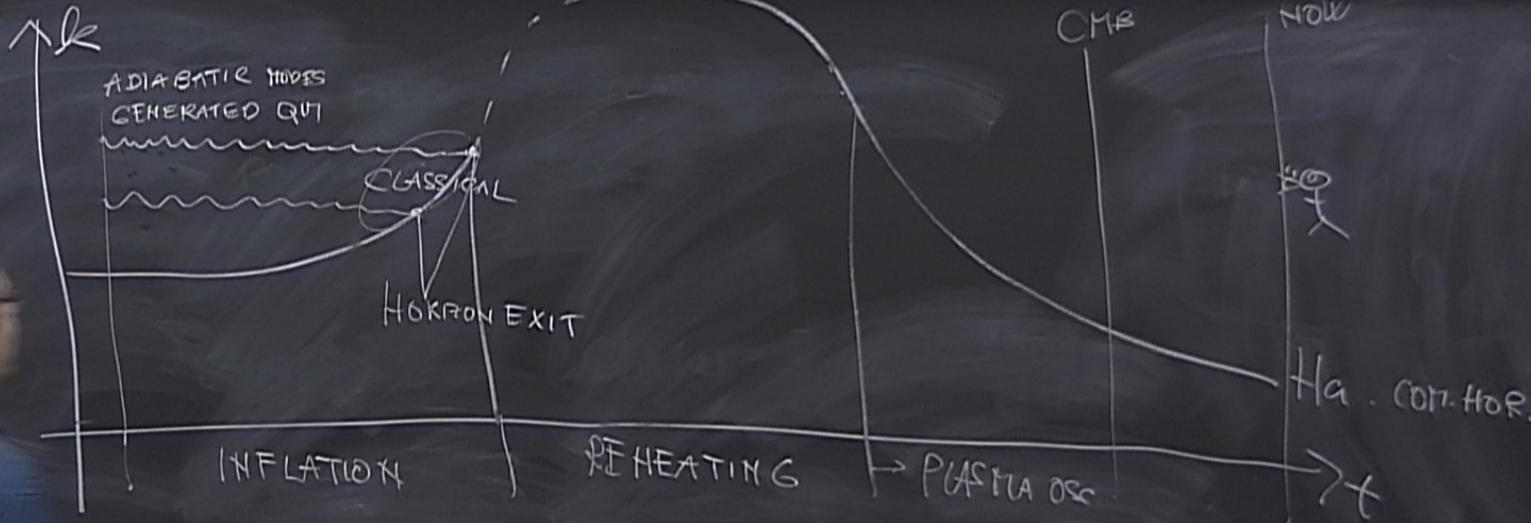 k
CMB
NOW
ADIABATIC MODES
GENERATED QM
CLASSICAL
HORIZON EXIT
Ha. COM. HOR.
INFLATION
REHEATING
→ PLASMA OSC
t